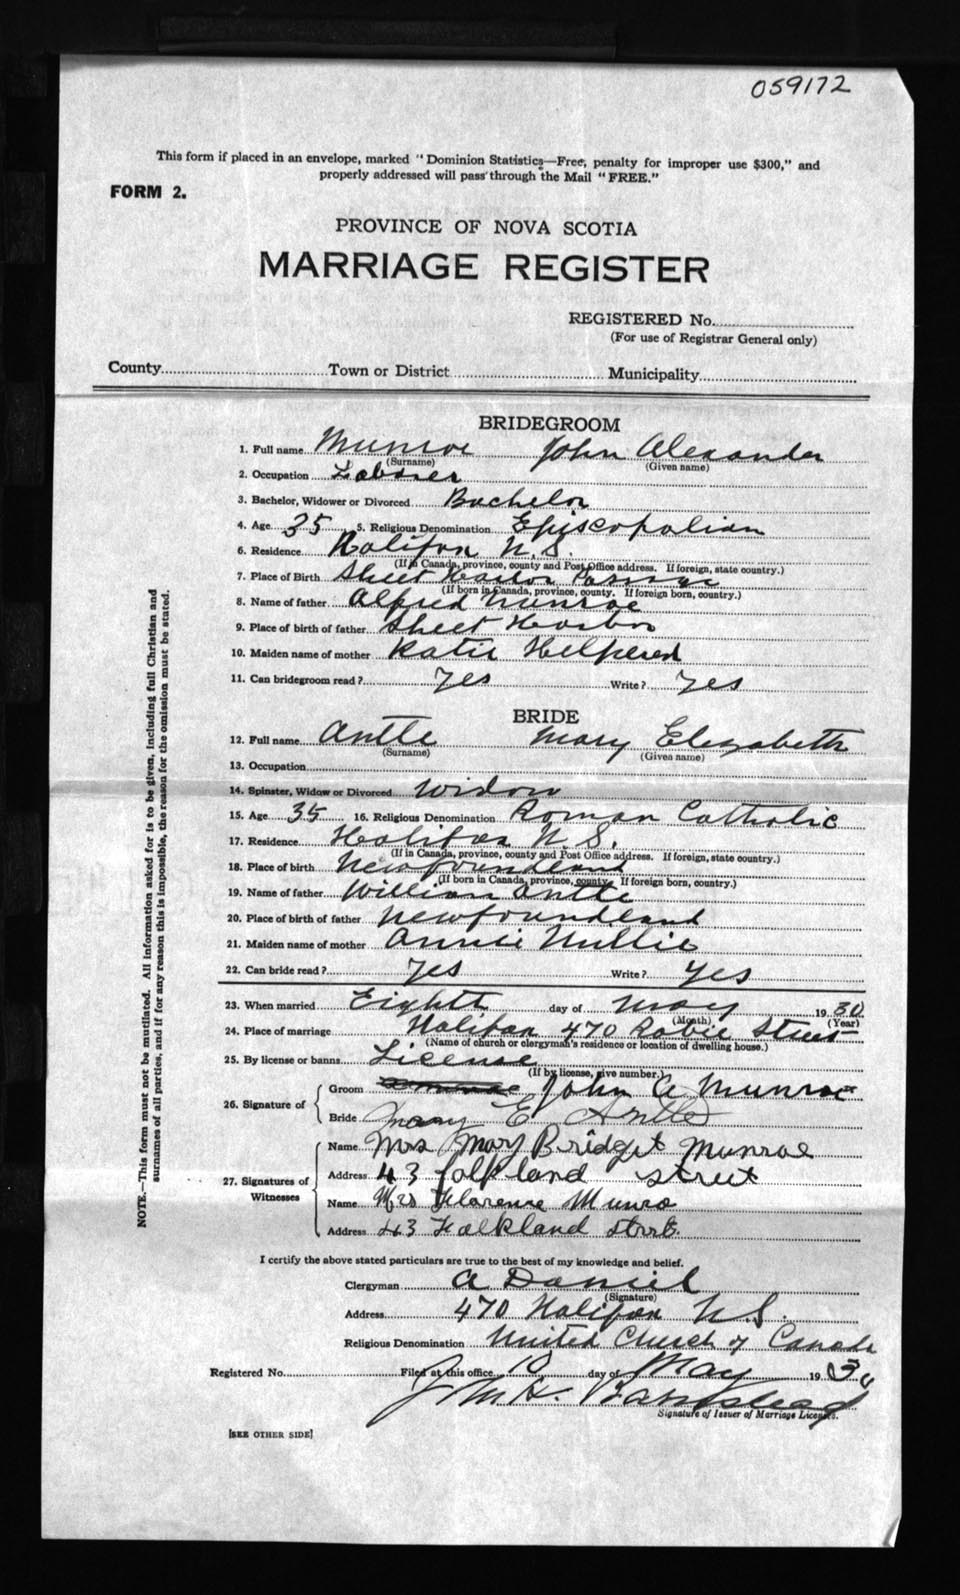 059172
This form if placed in an envelope, marked "Dominion Statistics—Free, penalty for improper use $300," and
properly addressed will pass through the Mail "FREE."
FORM 2.
PROVINCE OF NOVA SCOTIA
MARRIAGE REGISTER
REGISTERED No.
(For use of Registrar General only)
County Town or District Municipality
BRIDEGROOM
1. Full name Munroe John Alexander
(Surname) (Given name)
2. Occupation Laborer
3. Bachelor, Widower or Divorced Bachelor
4. Age 35 5. Religious Denomination Episcopalian
6. Residence Halifax N.S.
(If in Canada, province, county and Post Office address. If foreign, state country.)
7. Place of Birth Sheet Harbor
(If born in Canada, province, county. If foreign born, country.)
8. Name of father Alfred Munroe
9. Place of birth of father Sheet Harbor
10. Maiden name of mother Katie
11. Can bridegroom read? Yes Write? Yes
BRIDE
12. Full name Antle Mary Elizabeth
(Surname) (Given name)
13. Occupation
14. Spinster, Widow or Divorced Widow
15. Age 35 16. Religious Denomination Roman Catholic
17. Residence Halifax N.S.
(If in Canada, province, county and Post Office address. If foreign, state country.)
18. Place of birth Newfoundland
(If born in Canada, province, county. If foreign born, country.)
19. Name of father William Antle
20. Place of birth of father Newfoundland
21. Maiden name of mother Annie
22. Can bride read? Yes Write? Yes
23. When married Eighth day of May 1930
(Month) (Year)
24. Place of marriage Halifax 470 Robie Street
(Name of church or clergyman's residence or location of dwelling house.)
25. By license or banns License
(If by license, give number.)
26. Signature of
Groom John A Munroe
Bride Mary E Antle
27. Signatures of Witnesses
Name Mrs Mary Bridget Munroe
Address 43 falkland street
Name Mrs Florence Munro
Address 43 Falkland
I certify the above stated particulars are true to the best of my knowledge and belief.
Clergyman A Daniel
(Signature)
Address 470 Halifax N.S.
Religious Denomination United Church of Canada
Registered No. Filed at this office 10 day of May 1930
Barnstead
Signature of Issuer of Marriage Licenses.
[SEE OTHER SIDE]
NOTE.—This form must not be mutilated. All information asked for is to be given, including full Christian and
surnames of all parties, and if for any reason this is impossible, the reason for the omission must be stated.